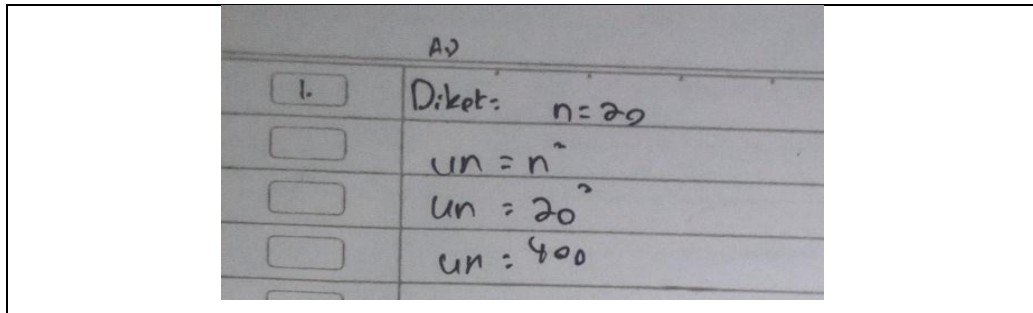 A2
1. Diket: n = 20
un = n²
un = 20²
un = 400